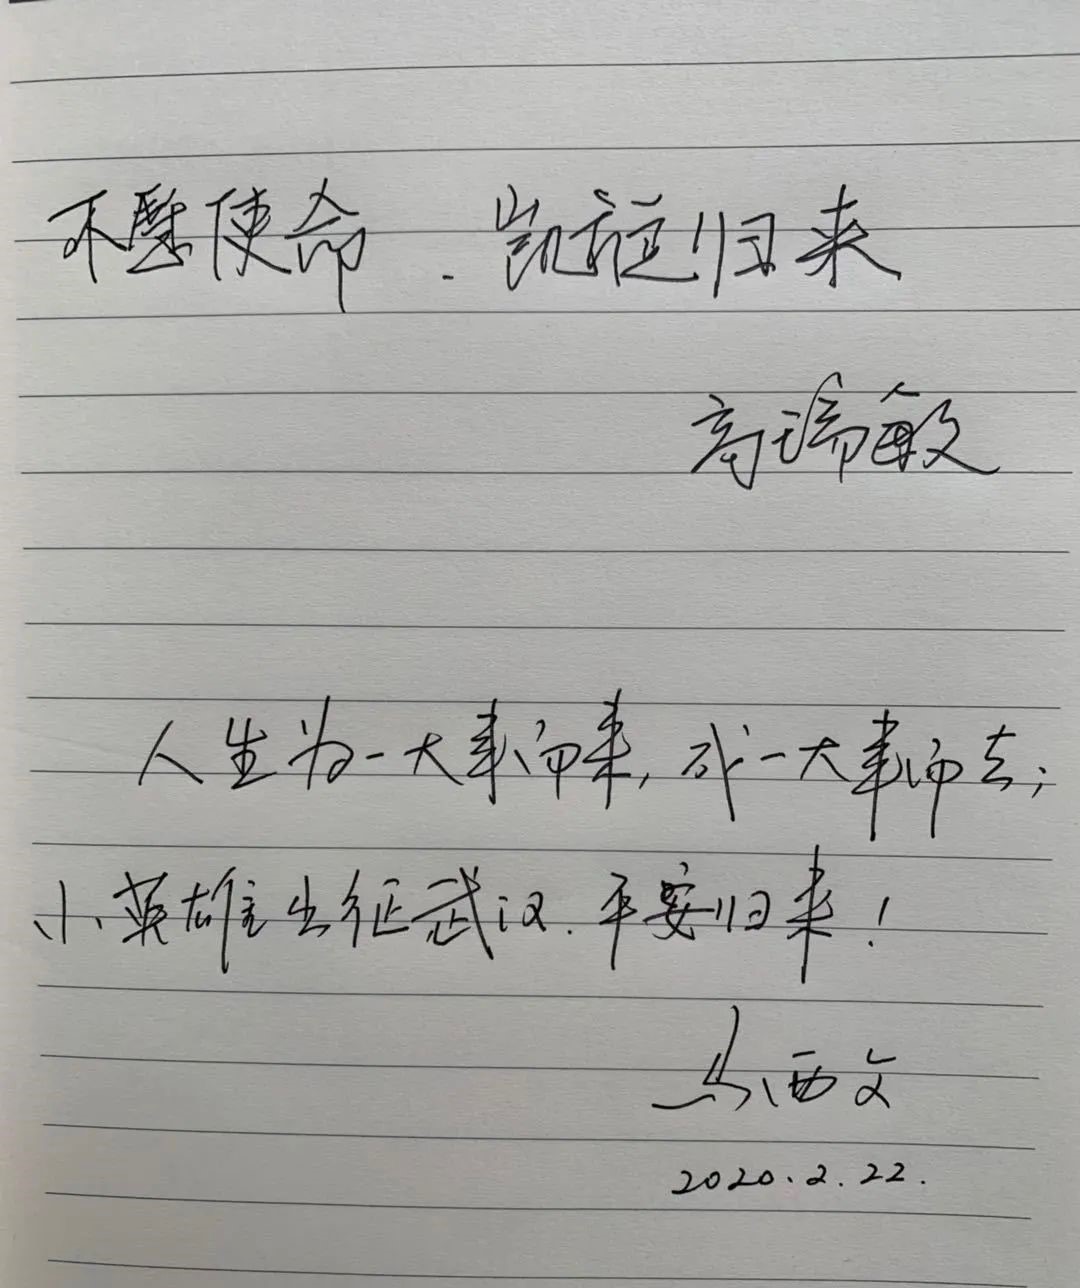 不辱使命.凯旋归来
高瑞敏
人生为一大事而来,成一大事而去;
小英雄出征武汉.平安归来!
马西文
2020.2.22.